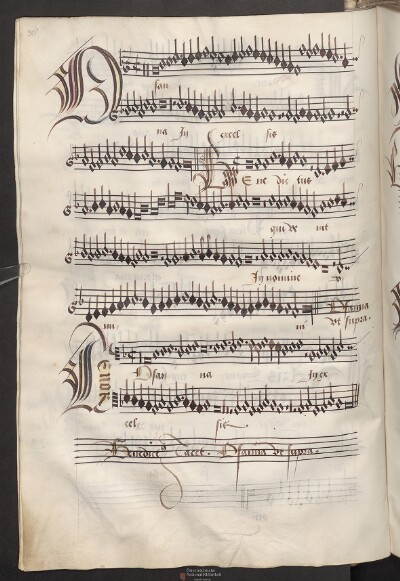 O san
na In excel sis
Be ne dic tus
qui ve nit
In nomine
ni Osanna
ut supra.
TENOR
Osan na In ex
cel sis
Benedictus Tacet. Osanna ut supra.
Österreichische
Nationalbibliothek